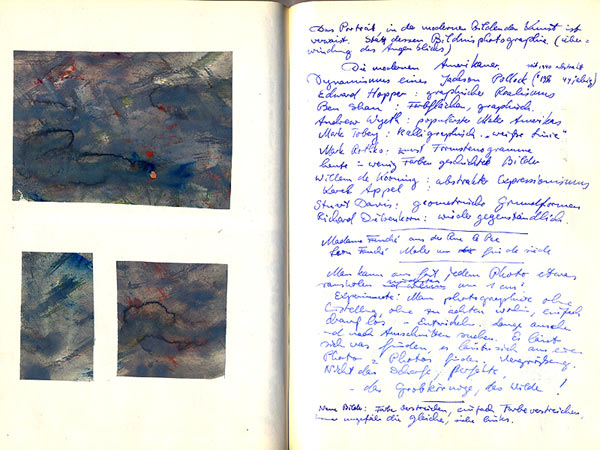 Das Porträt in der modernen Bildenden Kunst ist
verwaist. Statt dessen Bildnisphotographie (Über-
windung des Augenblickes)
Die modernen Amerikaner
Dynamismus eines Jackson Pollock
Edward Hopper: graphischer Realismus
Ben Shan: Farbflächen, graphisch.
Andrew Wyeth: populärster Maler Amerikas
Mark Tobey: Kalligraphisch "weiße Linie"
Mark Rotko:
heute: wenig Farben geschichtete Bilder
Willem de Kooning: abstrakter Expressionismus
Karel Appel
Stuart Davis: geometrische Grundformen
Richard Dibenkorn: wieder gegenständlich.
Madame aus der Rue
Maler
Man kann aus fast jedem Photo etwas
rausholen um 1 cm
Experimente: Man photographiere ohne
Einstellung, ohne zu achten wohin, einfach
drauf los. - Entwickeln. Lange ansehen
- nach Ausschnitten suchen. Es lässt
sich was finden, es lassen sich aus einem
Photo 2 Photos finden. Vergrößerung.
Nicht das Scharfe, Perfekte,
- das Grobkörnige, das Wilde!
Neue Bilder: Farbe verstreichen, einfach Farbe verstreichen,
immer ungefähr die gleiche, siehe links.